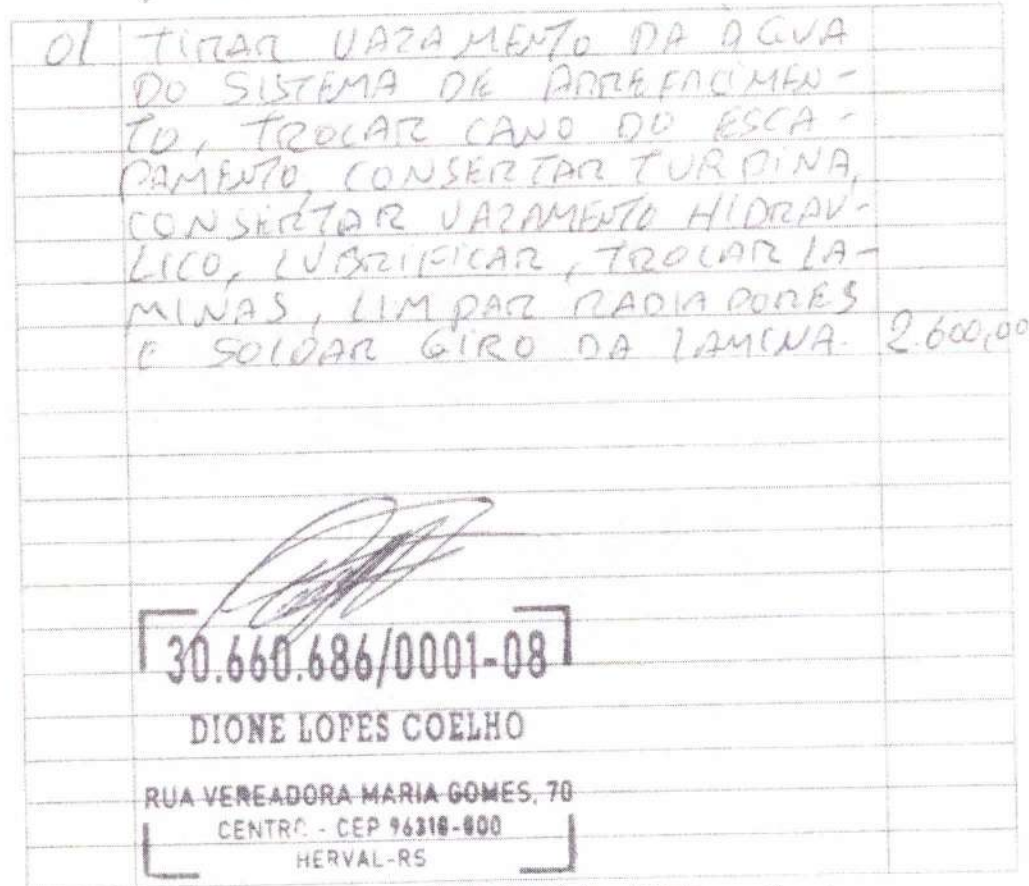 01 TIRAR VAZAMENTO DA ÁGUA
DO SISTEMA DE ARREFACIMEN-
TO, TROCAR CANO DO ESCA-
PAMENTO, CONSERTAR TURBINA,
CONSERTAR VAZAMENTO HIDRAU-
LICO, LUBRIFICAR, TROCAR LA-
MINAS, LIMPAR RADIADORES
E SOLDAR GIRO DA LAMINA. 2.600,00
30.660.686/0001-08
DIONE LOPES COELHO
RUA VEREADORA MARIA GOMES, 70
CENTRO - CEP 96310-000
HERVAL-RS